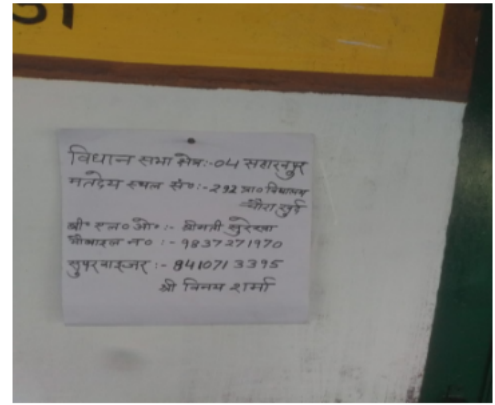 विधान सभा क्षेत्र:-04 सहारनपुर
मतदेय स्थल सं०:-292 प्रा० विद्यालय
खुर्द
बी० एल० ओ० :- श्रीमती सुरेखा
मोबाइल न० :- 9837271970
सुपरवाइजर :- 8410713395
श्री विनय शर्मा